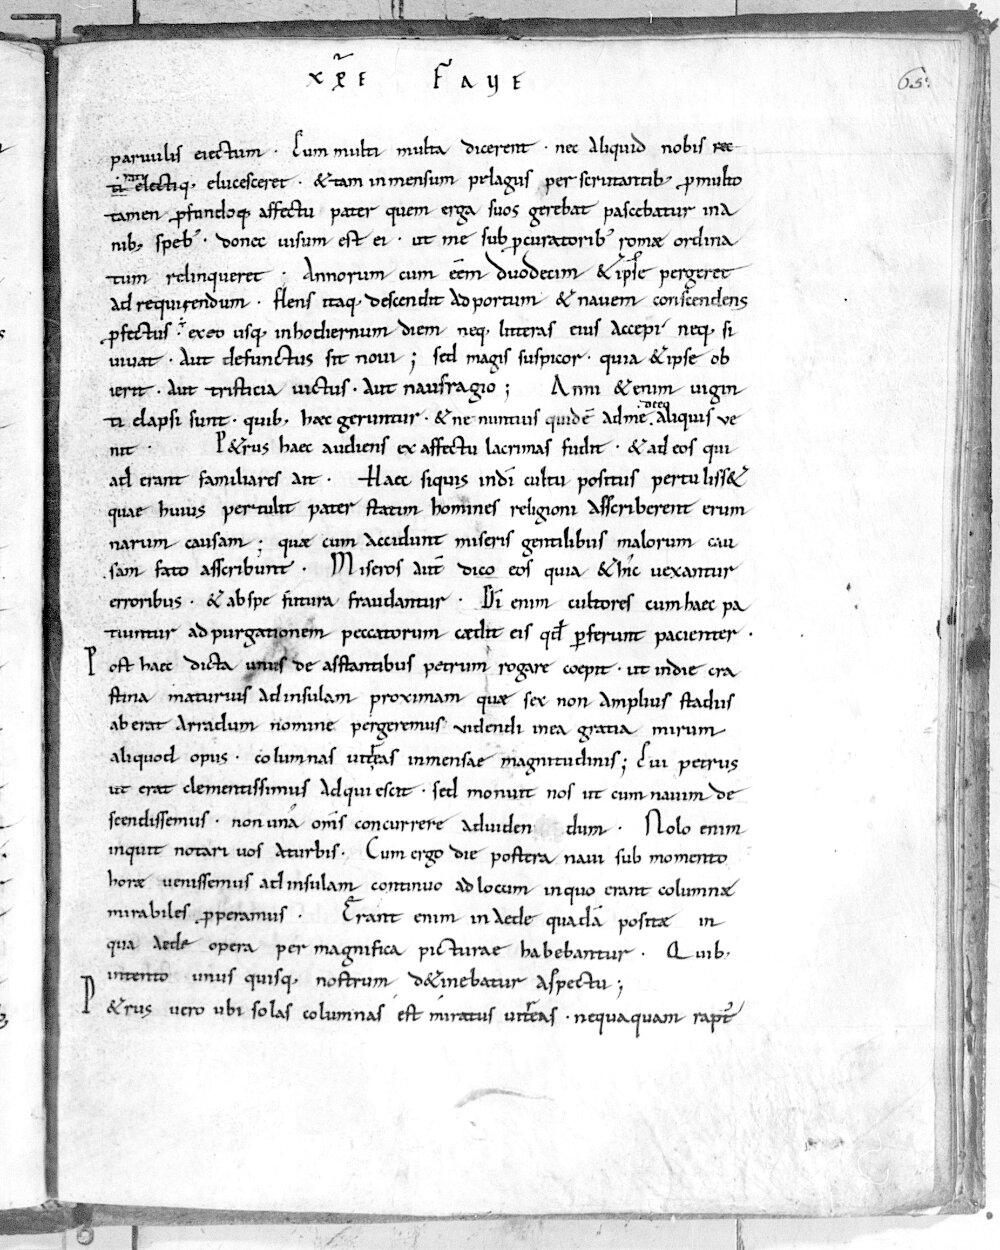 xp̅e faue
65.
paruulis eiectum · Cum multi multa dicerent · nec aliquid nobis rec
ti electiq; elucesceret · & tam inmensum pelagus perscrutantib; ꝓ multo
tamen ꝓfundoq; affectu pater quem erga suos gerebat pascebatur ina
nib; speb; · donec uisum est ei · ut me sub ꝓcuratorib; romae ordina
tum relinqueret · Annorum cum eēm duodecim & ipse pergeret
ad requirendum · flens itaq; descendit ad portum & nauem conscendens
ꝓfectus ÷ ex eo usq; in hodiernum diem neq; litteras eius accepi neq; si
uiuat · aut defunctus sit noui ; sed magis suspicor · quia & ipse ob
ierit · aut tristicia uictus · aut naufragio ; Anni & enim uigin
ti elapsi sunt · quib; haec geruntur · & ne nuntius quidē ad me · de eo aliquis ue
nit · P&rus haec audiens ex affectu lacrimas fudit · & ad eos qui
ad erant familiares ait · Haec siquis in dī cultu positus pertuliss&
quae huius pertulit pater statim homines religioni asscriberent erum
narum causam ; quae cum accidunt miseris gentilibus malorum cau
sam fato asscribunt · Miseros aut̄ dico eos quia & hic uexantur
erroribus · & ab spe futura fraudantur · Dī enim cultores cum haec pa
tiuntur ad purgationem peccatorum caedit eis qđ ꝑferunt pacienter ·
Post haec dicta unus de asstantibus petrum rogare coepit · ut in die cra
stina maturius ad insulam proximam quae sex non amplius stadiis
ab erat arradum nomine pergeremus uidendi in ea gratia mirum
aliquod opus · columnas uitreas inmensae magnitudinis ; Cui petrus
ut erat clementissimus adquiescit · sed monuit nos ut cum nauim de
scendissemus · non una om̄s concurrere ad uiden dum · Nolo enim
inquit notari uos a turbis · Cum ergo die postera naui sub momento
horae uenissemus ad insulam continuo ad locum in quo erant columnae
mirabiles ꝓperamus · Erant enim in aede quadā positae in
qua aede opera per magnifica picturae habebantur · Quib;
intento unus quisq; nostrum d&inebatur aspectu ;
P&rus uero ubi solas columnas est miratus uitreas · nequaquam rapt̄